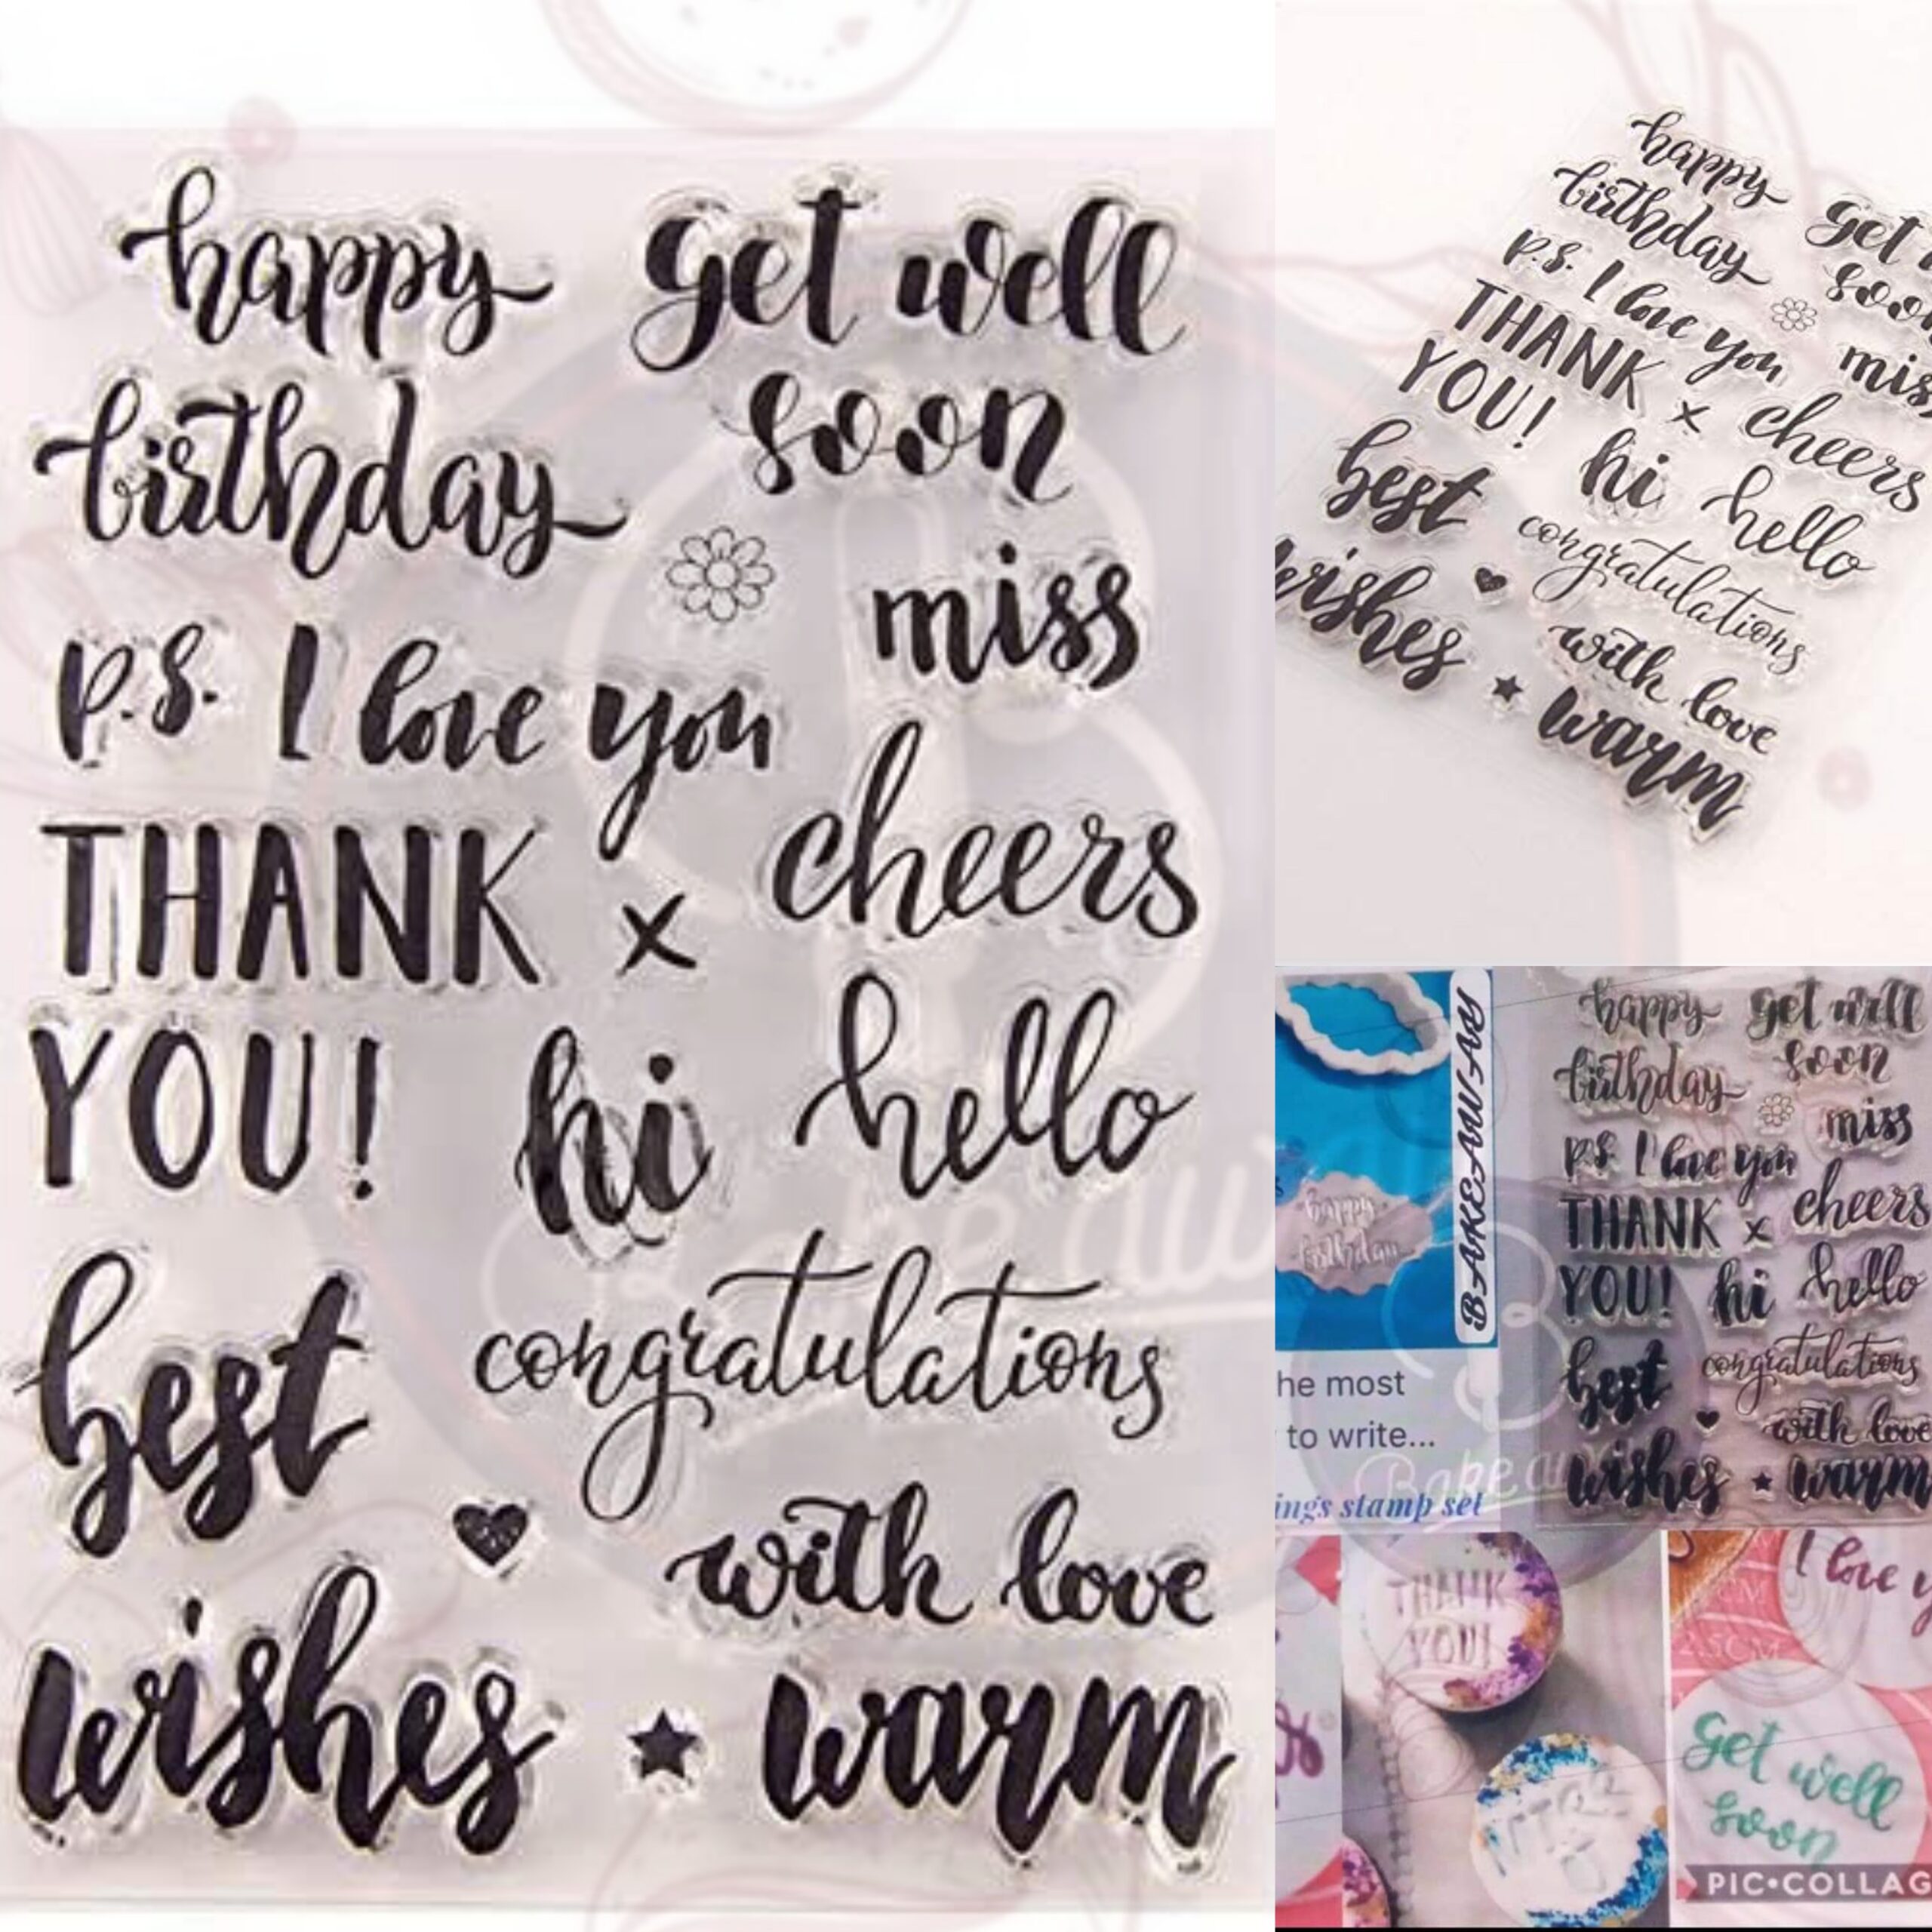 happy
birthday
get well
soon
miss
p.s. I love you
THANK
YOU!
x
cheers
hi
hello
best
wishes
congratulations
with love
warm
happy
birthday
get
soon
p.s. I love you
THANK
YOU!
x
cheers
hi
hello
best
wishes
congratulations
with love
warm
BAKEAWAY
happy
birthday
he most
to write...
ings stamp set
happy
birthday
get well
soon
miss
p.s. I love you
THANK
YOU!
x
cheers
hi
hello
best
wishes
congratulations
with love
warm
THANK
YOU!
I love y
Get well
soon
PIC•COLLAG